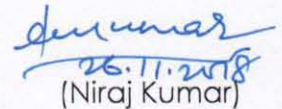 26.11.2018
(Niraj Kumar)